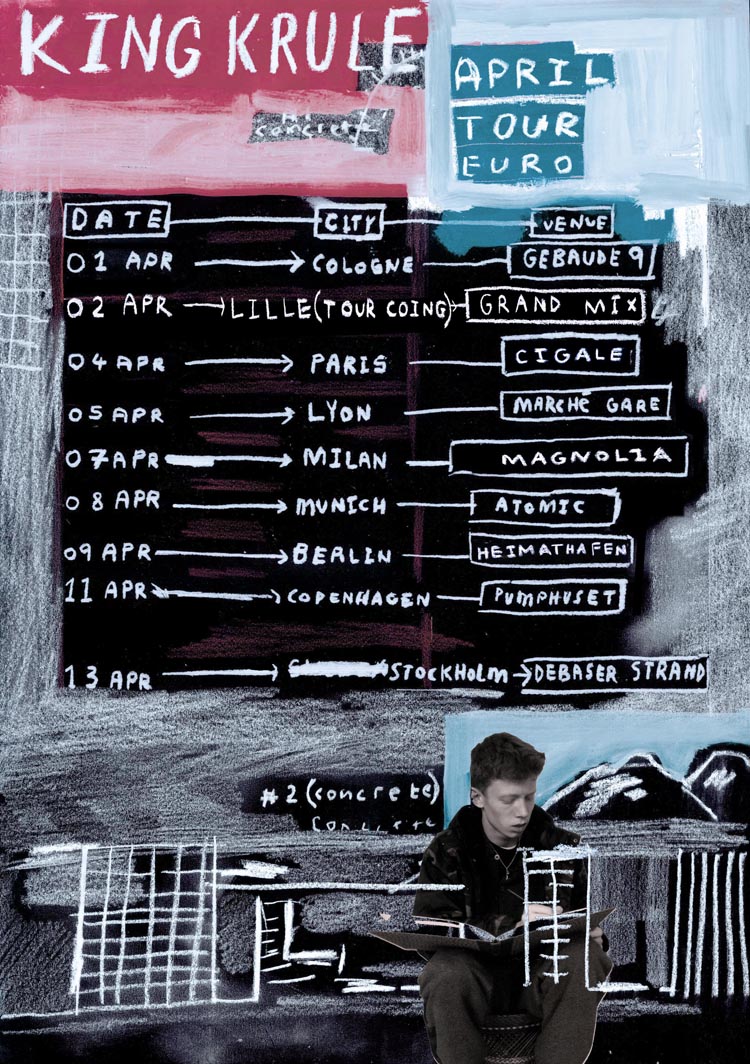 KING KRULE
APRIL
TOUR
EURO
concrete
DATE CITY VENUE
01 APR COLOGNE GEBAUDE 9
02 APR LILLE (TOUR COING) GRAND MIX
04 APR PARIS CIGALE
05 APR LYON MARCHÉ GARE
07 APR MILAN MAGNOLIA
08 APR MUNICH ATOMIC
09 APR BERLIN HEIMATHAFEN
11 APR COPENHAGEN PUMPHUSET
13 APR STOCKHOLM DEBASER STRAND
#2 (concrete)